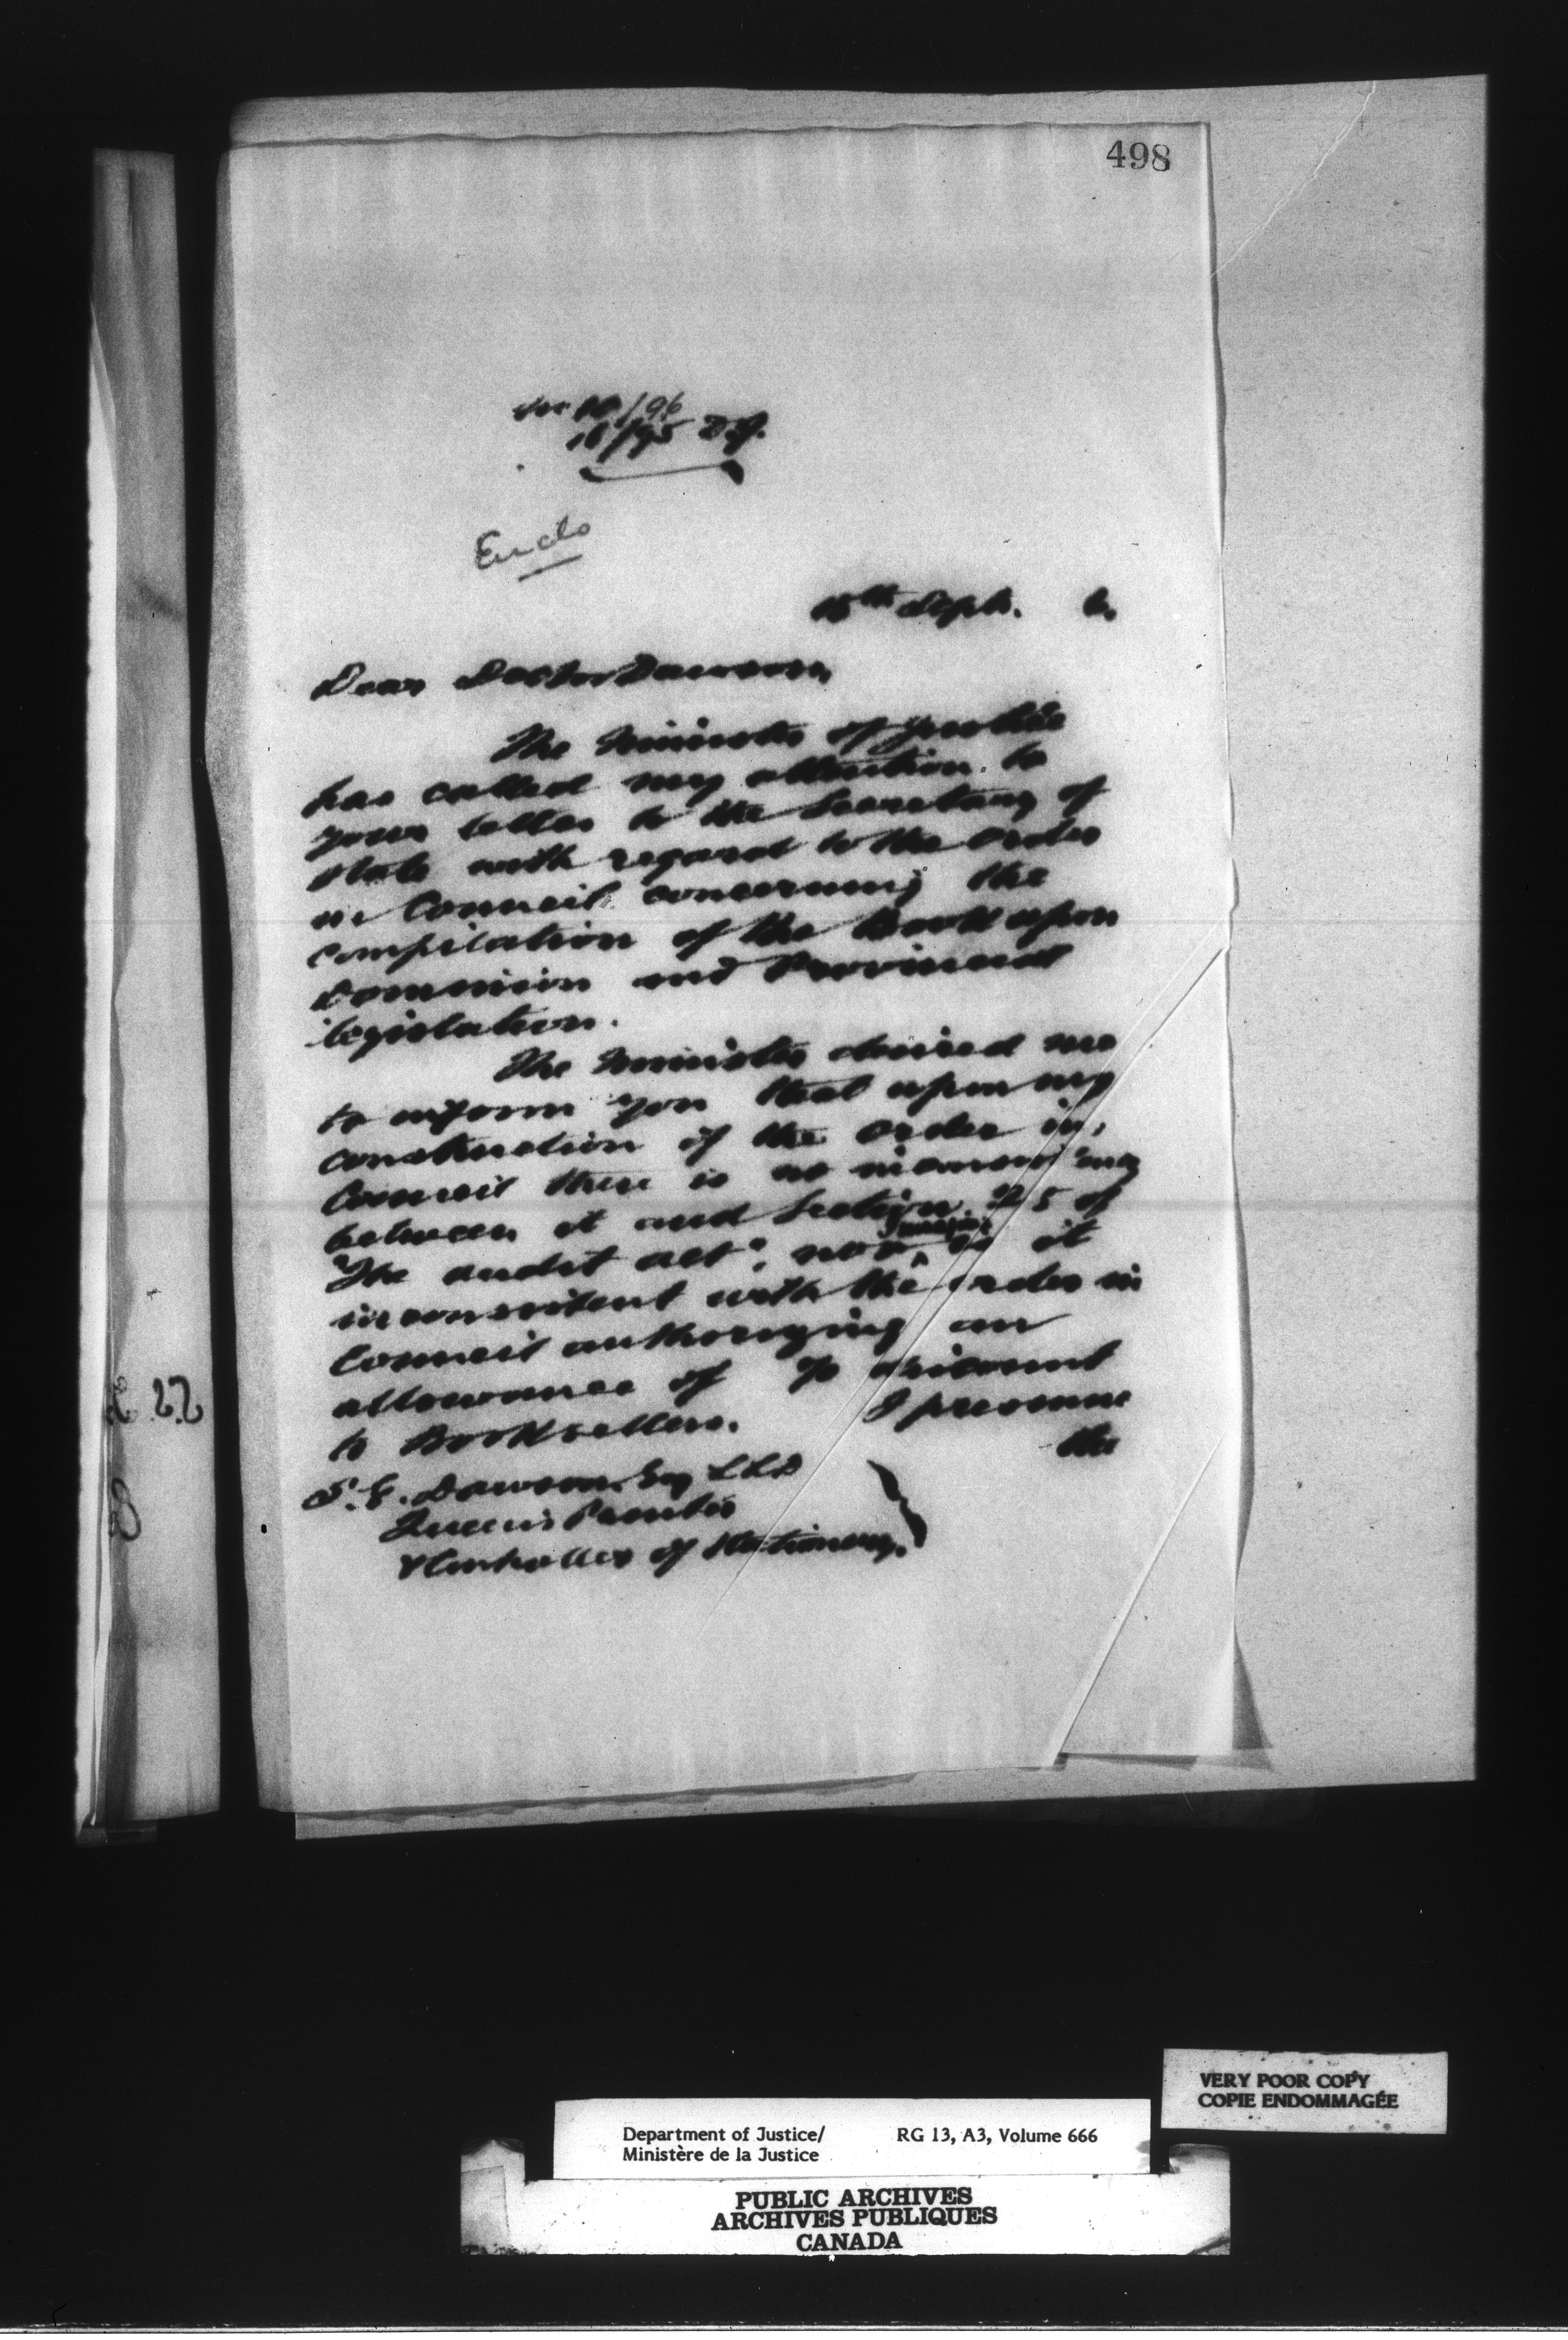 498
10/96
18/95 D.J.
Encls
15th Sept. 6.
Dear Doctor Dawson,
The Minister of Justice
has called my attention to
your letter to the Secretary of
State with regard to the Order
in Council concerning the
compilation of the Book upon
Dominion and Provincial
legislation.
The Minister desired me
to inform you that upon my
construction of the Order in
Council there is no inconsistency
between it and Section 25 of
"The audit act", nor, is it
inconsistent with the order in
Council authorizing an
allowance of % discount
to Booksellers. I presume
the
S. E. Dawson, Esq LLD
Queen's Printer
& Controller of Stationery.
VERY POOR COPY
COPIE ENDOMMAGÉE
Department of Justice/ RG 13, A3, Volume 666
Ministère de la Justice
PUBLIC ARCHIVES
ARCHIVES PUBLIQUES
CANADA